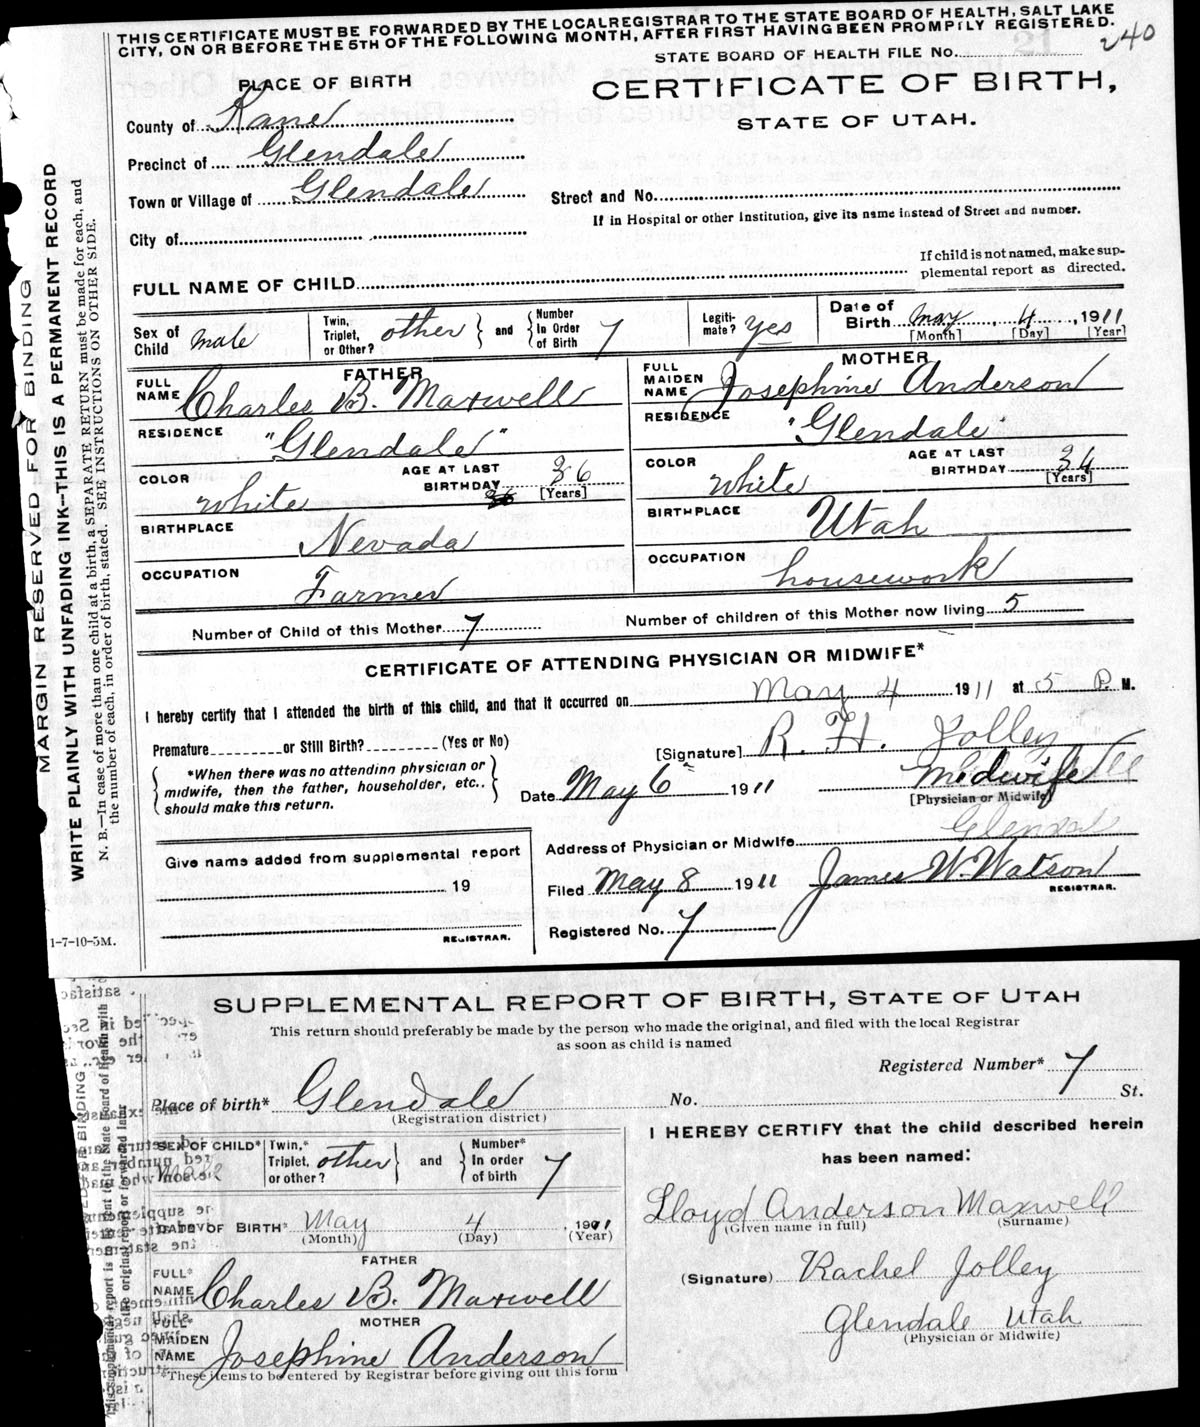 THIS CERTIFICATE MUST BE FORWARDED BY THE LOCAL REGISTRAR TO THE STATE BOARD OF HEALTH, SALT LAKE
CITY, ON OR BEFORE THE 5TH OF THE FOLLOWING MONTH, AFTER FIRST HAVING BEEN PROMPTLY REGISTERED.
STATE BOARD OF HEALTH FILE NO. 240
PLACE OF BIRTH
CERTIFICATE OF BIRTH,
STATE OF UTAH.
County of Kane
Precinct of Glendale
Town or Village of Glendale
Street and No.
If in Hospital or other Institution, give its name instead of Street and number.
City of
If child is not named, make sup-
plemental report as directed.
FULL NAME OF CHILD
Sex of Child male
Twin, Triplet, or Other? other
and
Number In Order of Birth 7
Legiti-mate? yes
Date of Birth May 4, 1911
[Month] [Day] [Year]
FATHER
FULL NAME Charles B. Maxwell
RESIDENCE "Glendale"
COLOR white
AGE AT LAST BIRTHDAY 36
[Years]
BIRTHPLACE Nevada
OCCUPATION Farmer
MOTHER
FULL MAIDEN NAME Josephine Anderson
RESIDENCE "Glendale"
COLOR white
AGE AT LAST BIRTHDAY 34
[Years]
BIRTHPLACE Utah
OCCUPATION housework
Number of Child of this Mother 7
Number of children of this Mother now living 5
CERTIFICATE OF ATTENDING PHYSICIAN OR MIDWIFE*
I hereby certify that I attended the birth of this child, and that it occurred on May 4 1911 at 5 P. M.
Premature or Still Birth? (Yes or No)
[Signature] R. H. Jolley
*When there was no attending physician or
midwife, then the father, householder, etc.,
should make this return.
Date May 6 1911
Midwife
[Physician or Midwife]
Address of Physician or Midwife
Give name added from supplemental report
19
REGISTRAR.
Filed May 8 1911 James W. Watson
REGISTRAR.
Registered No. 7
1-7-10-5M.
MARGIN RESERVED FOR BINDING
WRITE PLAINLY WITH UNFADING INK—THIS IS A PERMANENT RECORD
N. B.—In case of more than one child at a birth, a SEPARATE RETURN must be made for each, and
the number of each, in order of birth, stated. SEE INSTRUCTIONS ON OTHER SIDE.
SUPPLEMENTAL REPORT OF BIRTH, STATE OF UTAH
This return should preferably be made by the person who made the original, and filed with the local Registrar
as soon as child is named
Registered Number* 7
Place of birth* Glendale
(Registration district)
No. St.
SEX OF CHILD* Male
Twin,* Triplet, or other? other
and
Number* In order of birth 7
DATE OF BIRTH* May 4, 1911
(Month) (Day) (Year)
FATHER
FULL* NAME Charles B. Maxwell
MOTHER
FULL* MAIDEN NAME Josephine Anderson
*These items to be entered by Registrar before giving out this form
I HEREBY CERTIFY that the child described herein
has been named:
Lloyd Anderson Maxwell
(Given name in full) (Surname)
(Signature) Rachel Jolley
Glendale Utah
(Physician or Midwife)